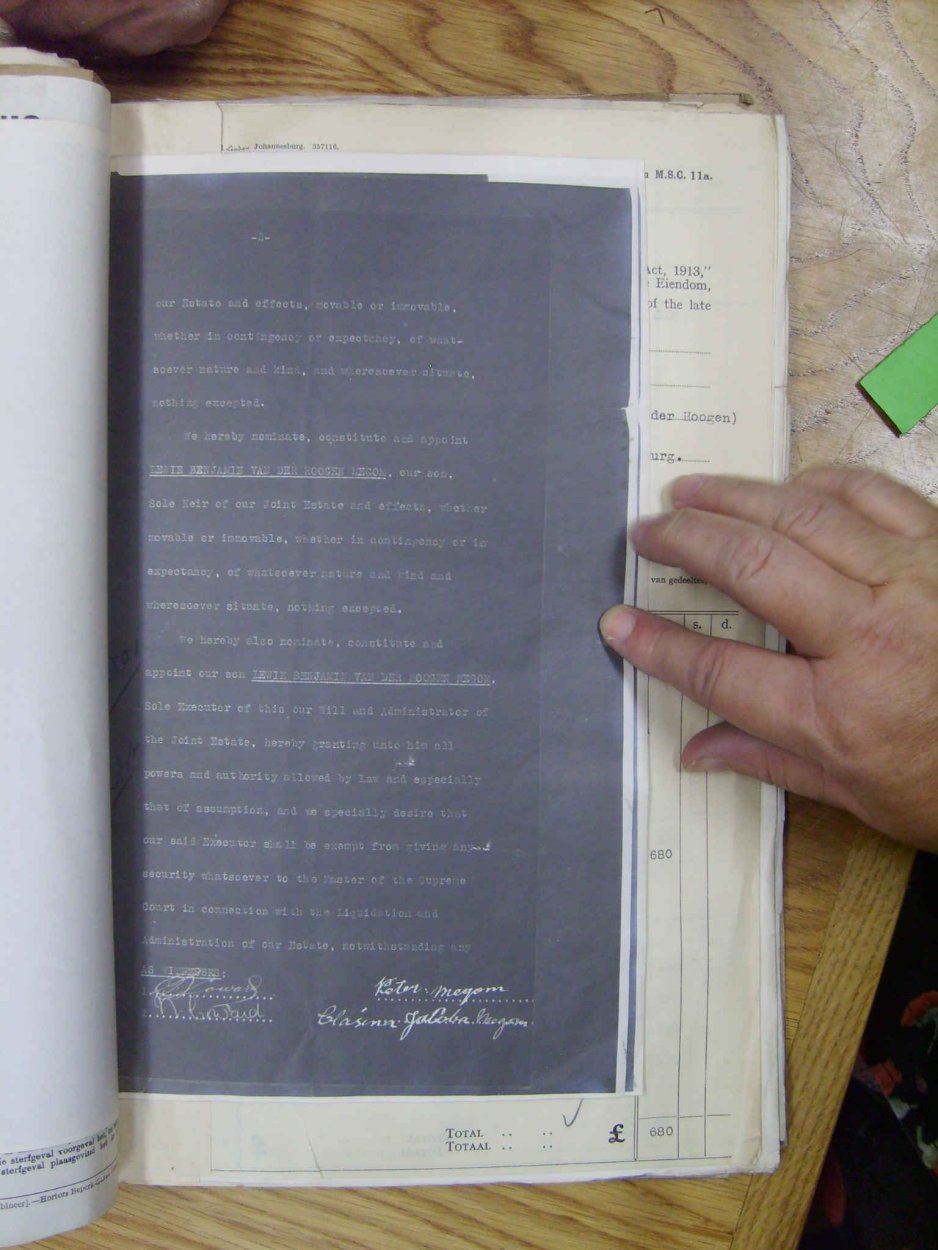 Johannesburg. 357116.
M.S.C. 11a.
-2-
Act, 1913,"
Eiendom,
of the late
der Hoogen)
urg.
van gedeelten,
s. d.
our Estate and effects, movable or immovable,
whether in contingency or expectancy, of what-
soever nature and kind, and wheresoever situate,
nothing excepted.
We hereby nominate, constitute and appoint
LEWIE BENJAMIN VAN DER HOOGEN MEGOM, our son,
Sole Heir of our Joint Estate and effects, whether
movable or immovable, whether in contingency or in
expectancy, of whatsoever nature and kind and
wheresoever situate, nothing excepted.
We hereby also nominate, constitute and
appoint our son LEWIE BENJAMIN VAN DER HOOGEN MEGOM,
Sole Executor of this our Will and Administrator of
the Joint Estate, hereby granting unto him all
powers and authority allowed by Law and especially
that of assumption, and we specially desire that
our said Executor shall be exempt from giving any
security whatsoever to the Master of the Supreme
Court in connection with the Liquidation and
Administration of our Estate, notwithstanding any
AS WITNESSES:
1. Peter Megom
2. Clasina Jacoba Megom
680
TOTAL .. .. £ 680
TOTAAL .. ..
sterfgeval voorgeval
sterfgeval plaasgevind